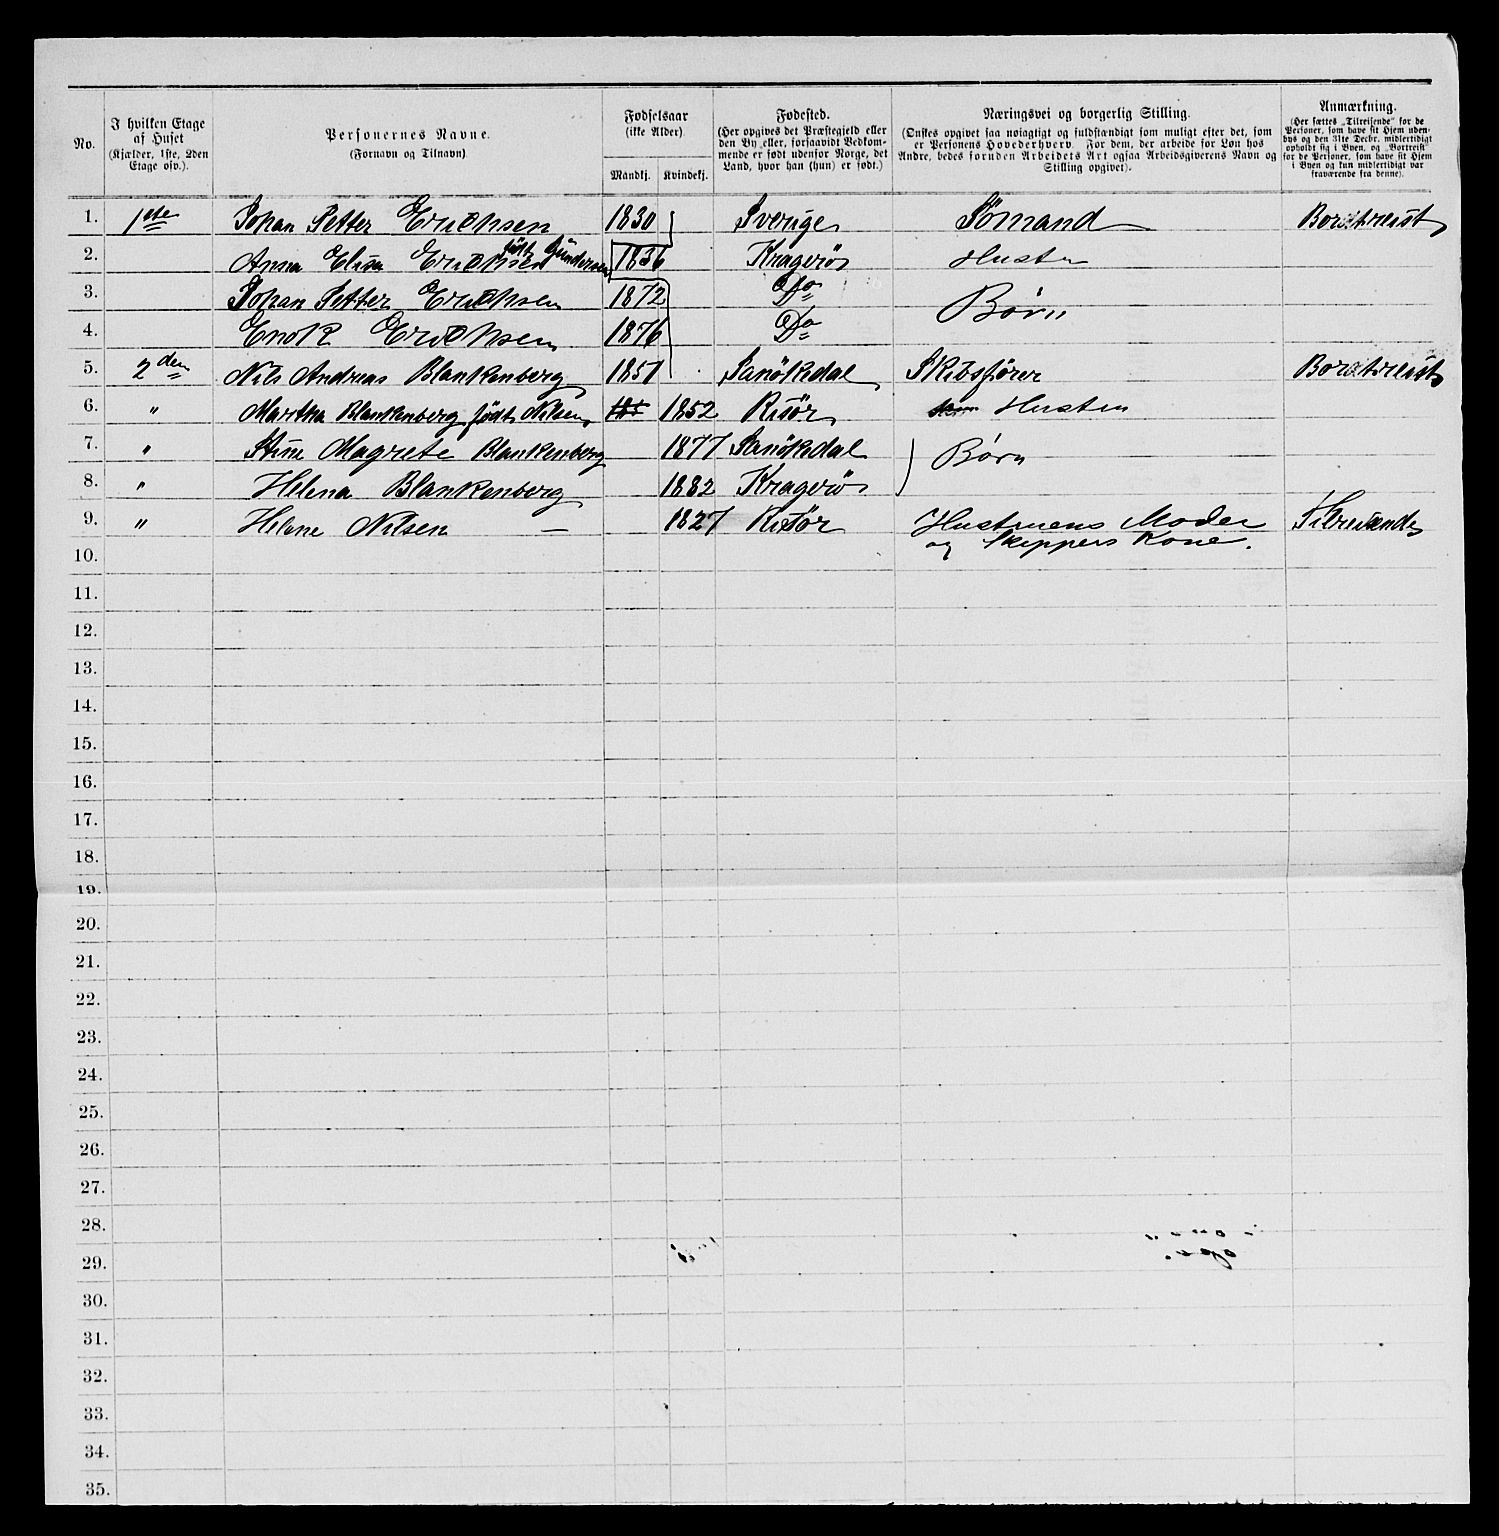 No.
I hvilken Etage af Huset (Kjælder, 1ste, 2den Etage osv.).
Personernes Navne. (Fornavn og Tilnavn)
Fødselsaar (ikke Alder)
Mandkj. Kvindekj.
Fødested. (Her opgives det Præstegjeld eller den By eller, forsaavidt Vedkommende er født udenfor Norge, det Land, hvor han (hun) er født.)
Næringsvei og borgerlig Stilling. (Ønskes opgivet saa nøiagtigt og fuldstændigt som muligt efter det, som er Personens Hovederhverv. For dem, der arbeide for Løn hos Andre, bedes foruden Arbeidets Art ogsaa Arbeidsgiverens Navn og Stilling opgivet).
Anmærkning. (Her sættes „Tilreisende" for de Personer, som have sit Hjem udenbys og den 31te Decbr. midlertidigt opholdt sig i Byen, og „Bortreist" for de Personer, som have sit Hjem i Byen og kun midlertidigt var fraværende fra denne).
1. 1ste Johan Petter Erichsen 1830 Sverige Sømand Bortreist
2. Anna Elisa Erichsen født Gundersen 1836 Kragerø Hustru
3. Johan Petter Erichsen 1872 Do Børn
4. Enok Erichsen 1876 Do
5. 2den Nils Andreas Blankenberg 1851 Sanökedal Skibsfører Bortreist
6. " Martha Blankenberg født Nilsen 1852 Risør Hustru
7. " Stine Magrete Blankenberg 1877 Sanökdal Børn
8. " Helena Blankenberg 1882 Kragerø
9. " Helene Nilsen — 1827 Risør Hustruens Moder Tilreisende
og Skippers Kone.
10.
11.
12.
13.
14.
15.
16.
17.
18.
19.
20.
21.
22.
23.
24.
25.
26.
27.
28.
29.
30.
31.
32.
33.
34.
35.